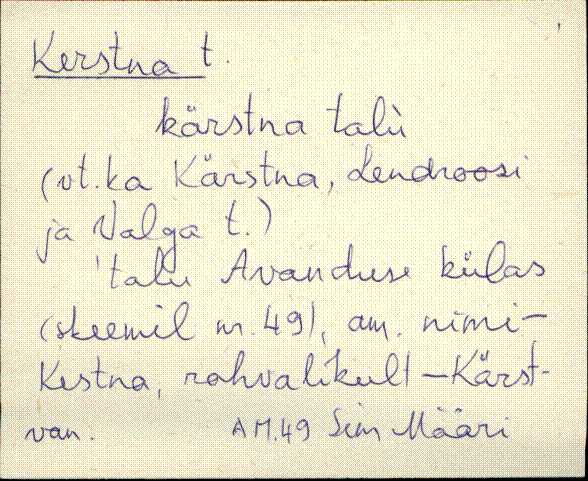 Kerstna t.
kärstna talù
(vt. ka Kärstna, Lendroosi
ja Valga t.)
'talu Avanduse külas
(skeemil nr. 49), am. nimi-
Kestna, rahvalikult - Kärst-
van. AM.49 Sim Määri